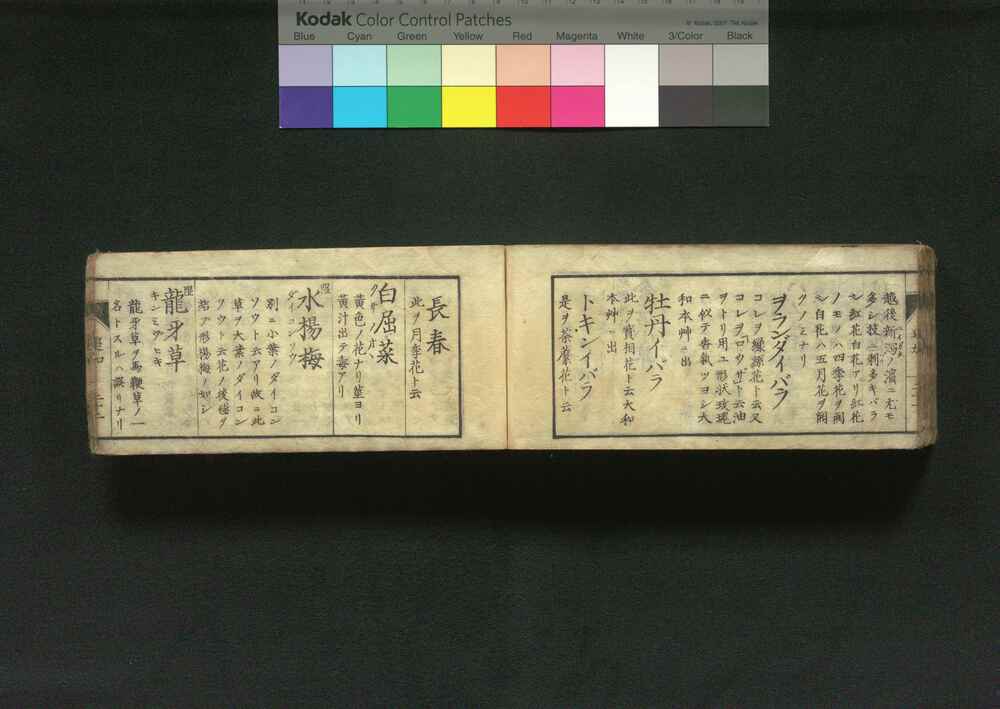 Kodak Color Control Patches
Blue Cyan Green Yellow Red Magenta White 3/Color Black
越後新潟ノ濱ニ尤モ
多シ枝ニ刺多キバラ
ニ紅花白花アリ紅花
ノモノハ四季花ヲ開
シ白花ハ五月花ヲ開
クノミナリ
ヲランダイバラ
コレヲ纏絲花ト云又
コレヲロウザト云油
ヲトリ用ユ形状玫瑰
ニ似テ香氣ツヨシ大
和本艸ニ出
牡丹イバラ
此ヲ寳相花ト云大和
本艸ニ出
トキンイバラ
是ヲ荼蘼花ト云
長春
此ヲ月季花ト云
白屈菜
黄色ノ花ナリ莖ヨリ
黄汁出テ毒アリ
水楊梅
ダイコンソウ
別ニ小葉ノダイコン
ソウト云アリ故ニ此
草ヲ大葉ノダイコン
ソウト云花ノ後穂ヲ
結ブ形楊梅ノ如シ
龍牙草
キンミヅヒキ
龍牙草ヲ馬鞭草ノ一
名トスルハ誤リナリ